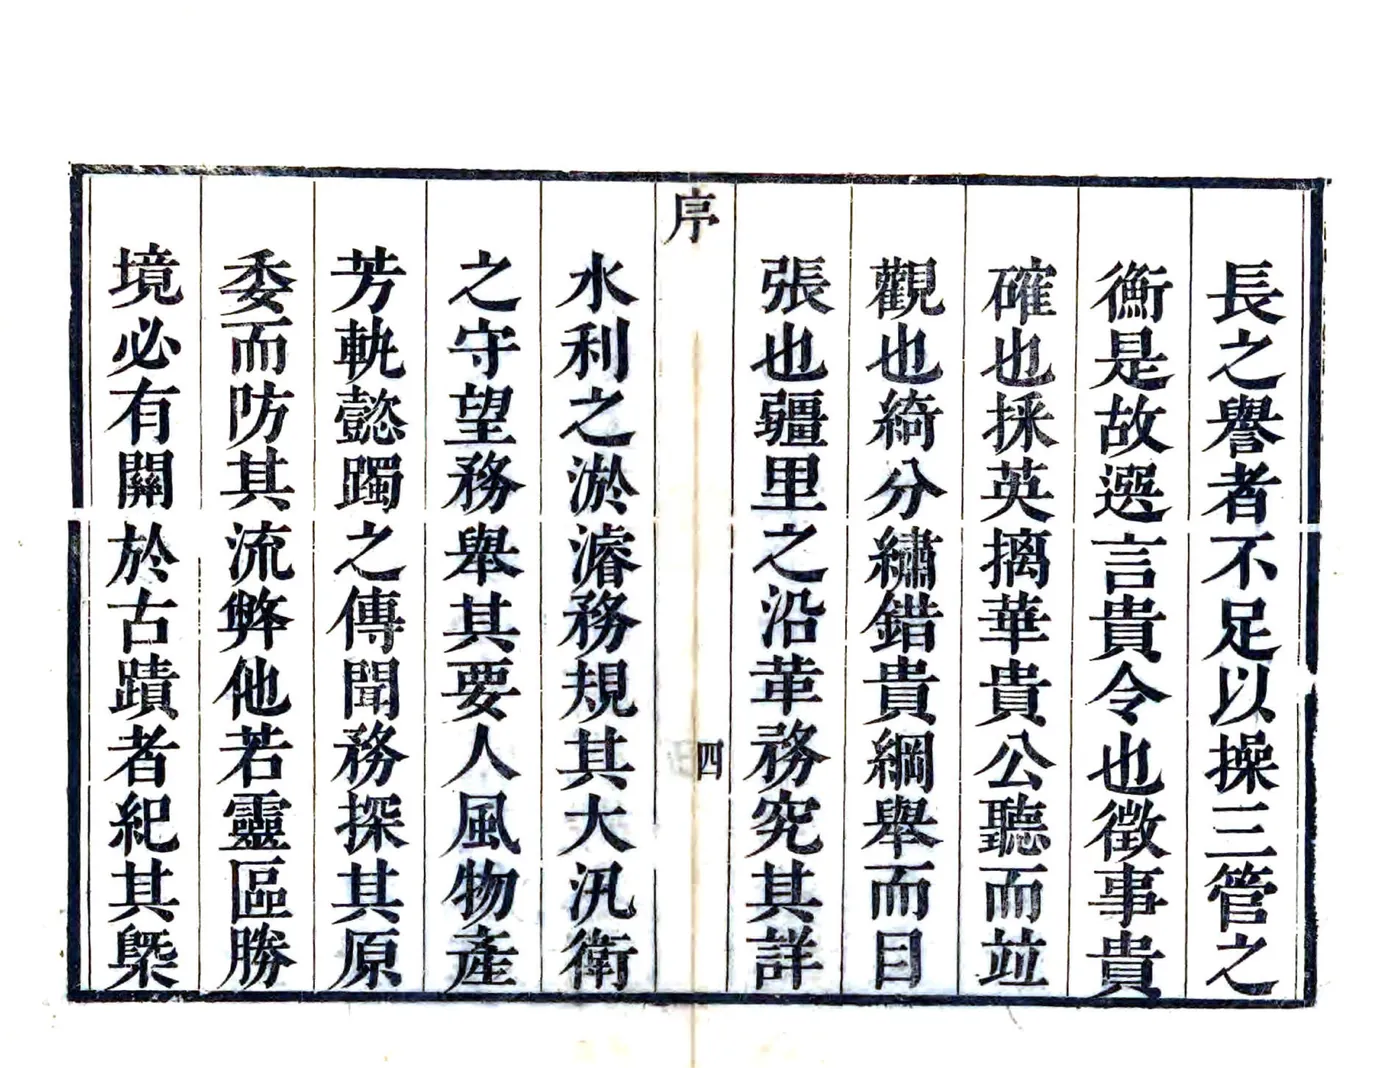 長之譽者不足以操三管之
衡是故選言貴令也徵事貴
確也採英摛華貴公聽而竝
觀也綺分繡錯貴綱舉而目
張也疆里之沿革務究其詳
序
四
水利之淤濬務規其大汛衛
之守望務舉其要人風物產
芳軌懿躅之傳聞務探其原
委而防其流弊他若靈區勝
境必有關於古蹟者紀其槩